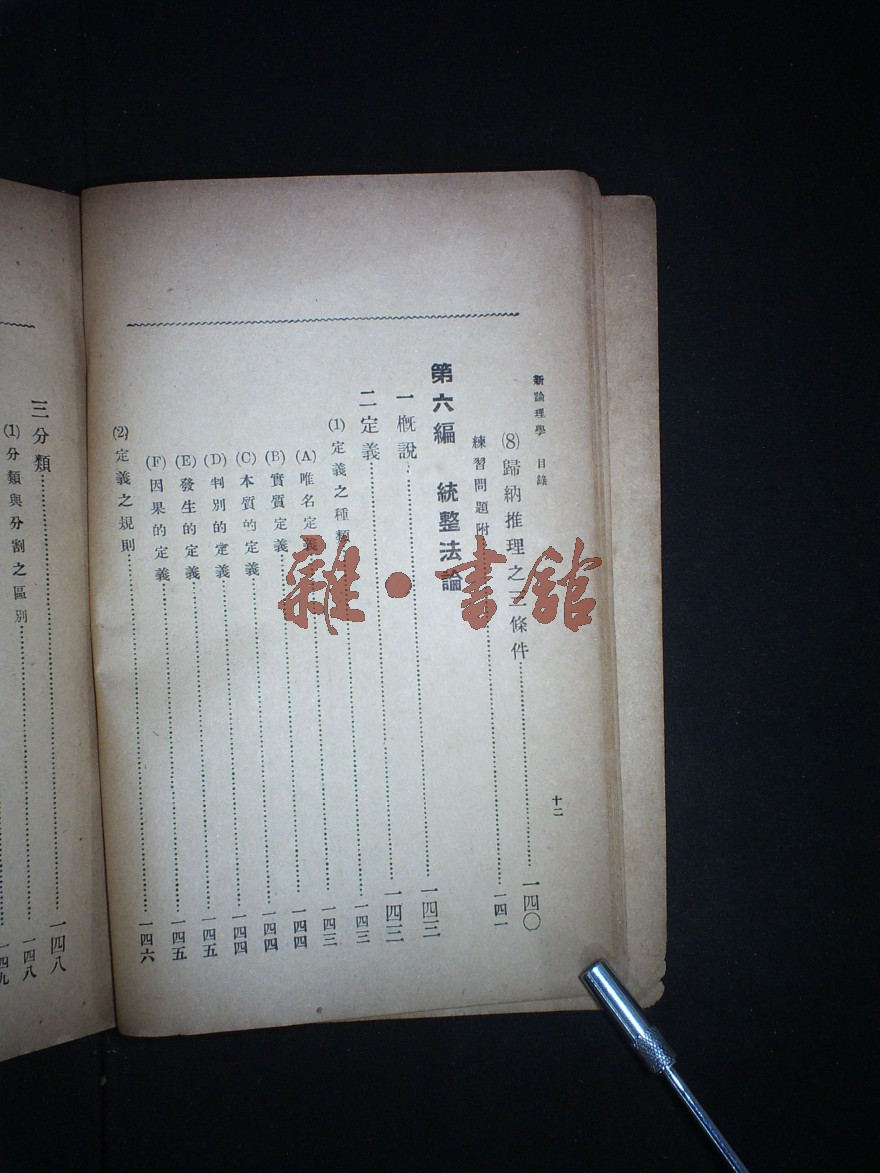 新論理學 目錄
十二
(8)歸納推理之三條件 一四〇
練習問題附 一四一
第六編 統整法論
一概說 一四三
二定義 一四三
(1)定義之種類 一四三
(A)唯名定義 一四三
(B)實質定義 一四四
(C)本質的定義 一四四
(D)判別的定義 一四四
(E)發生的定義 一四五
(F)因果的定義 一四五
(2)定義之規則 一四六
三分類 一四八
(1)分類與分割之區別 一四八
一四九
雜·書館